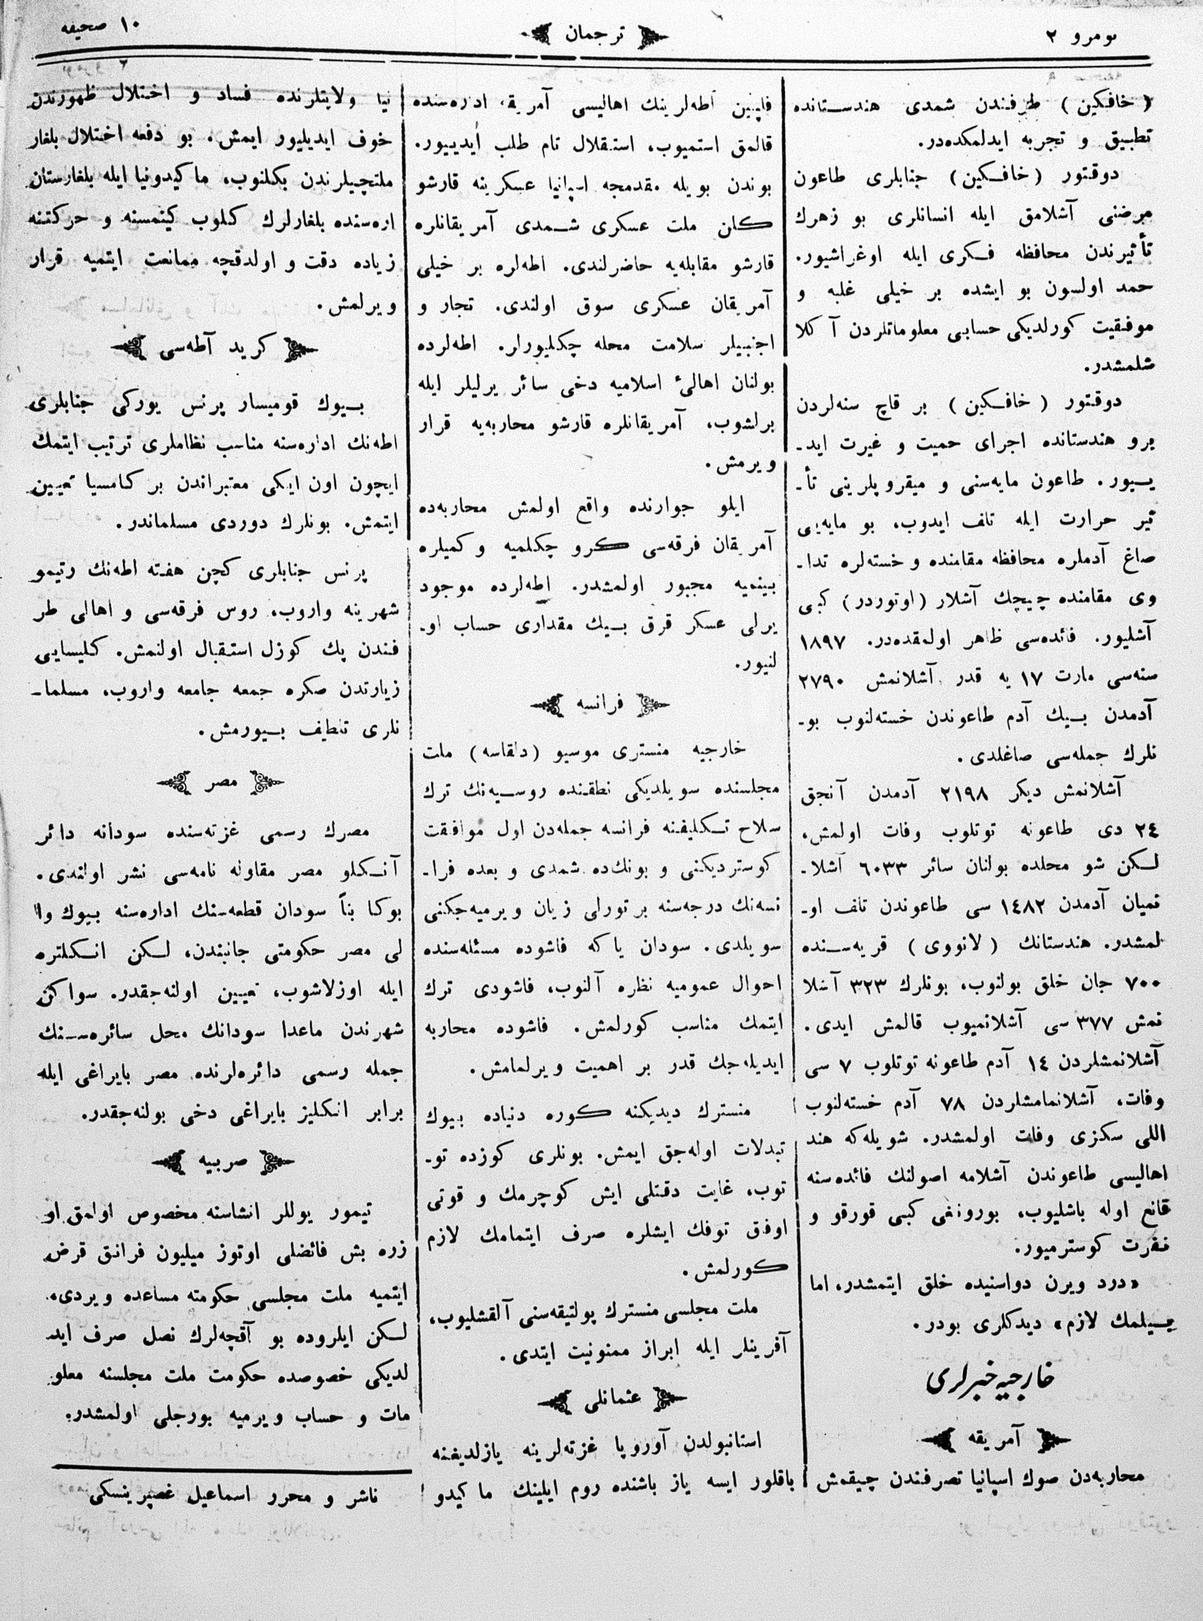 نومرو ٢
ترجمان
١٠ صحیفه
(خافکین) طرفندن شمدی هندستانده
تطبیق و تجربه ایدلمکده‌در.
دوقتور (خافکین) جنابلری طاعون
مرضنی آشلامق ایله انسانلری بو زهرك
تأثیرندن محافظه فکری ایله اوغراشیور.
حمد اولسون بو ایشده بر خیلی غلبه و
موفقیت کورلدیکی حسابی معلوماتلردن آکلا
شلمشدر.
دوقتور (خافکین) بر قاچ سنه‌لردن
برو هندستانده اجرای حمیت و غیرت اید-
ییور. طاعون مایه‌سنی و میقروپلرینی تأ-
ثیر حرارت ایله تلف ایدوب، بو مایه‌یی
صاغ آدملره محافظه مقامنده و خسته‌لره تدا-
وی مقامنده چیچك آشلار (اوتوردر) کبی
آشلیور. فائده‌سی ظاهر اولمقده‌در. ١٨٩٧
سنه‌سی مارت ١٧ یه قدر آشلانمش ٢٧٩٠
آدمدن بیك آدم طاعوندن خسته‌لنوب بو-
نلرك جمله‌سی صاغلدی.
آشلانمش دیکر ٢١٩٨ آدمدن آنجق
٢٤ دی طاعونه توتلوب وفات اولمش،
لکن شو محلده بولنان سائر ٦٠٣٣ آشلا-
نمیان آدمدن ١٤٨٢ سی طاعوندن تلف او-
لمشدر. هندستانك (لانووی) قریه‌سنده
٧٠٠ جان خلق بولنوب، بونلرك ٣٢٣ آشلا
نمش ٣٧٧ سی آشلانمیوب قالمش ایدی.
آشلانمشلردن ١٤ آدم طاعونه توتلوب ٧ سی
وفات، آشلانمامشلردن ٧٨ آدم خسته‌لنوب
اللی سکزی وفات اولمشدر. شویله‌که هند
اهالیسی طاعوندن آشلامه اصولنك فائده‌سنه
قانع اوله باشلیوب، بورونغی کبی قورقو و
نفرت کوسترمیور.
«درد ویرن دواسنیده خلق ایتمشدر، اما
بیلمك لازم» دیدکلری بودر.
خارجیه خبرلری
آمریقه
محاربه‌دن صوك اسپانیا تصرفندن چیقمش
فلپین اطه‌لرینك اهالیسی آمریقه اداره‌سنده
قالمق استمیوب، استقلال تام طلب ایدییور.
بوندن بویله مقدمجه اسپانیا عسکرینه قارشو
کان ملت عسکری شمدی آمریقانلره
قارشو مقابله‌یه حاضرلندی. اطه‌لره بر خیلی
آمریقان عسکری سوق اولندی. تجار و
اجنبیلر سلامت محله چکلیورلر. اطه‌لرده
بولنان اهالیٔ اسلامیه دخی سائر یرلیلر ایله
برلشوب، آمریقانلره قارشو محاربه‌یه قرار
ویرمش.
ایلو جوارنده واقع اولمش محاربه‌ده
آمریقان فرقه‌سی کرو چکلمیه و کمیلره
بینمیه مجبور اولمشدر. اطه‌لرده موجود
یرلی عسکر قرق بیك مقداری حساب او-
لنیور.
فرانسه
خارجیه منستری موسیو (دلقاسه) ملت
مجلسنده سویلدیکی نطقنده روسیه‌نك ترك
سلاح تکلیفنه فرانسه جمله‌دن اول موافقت
کوستردیکنی و بونك‌ده شمدی و بعده فرا-
نسه‌نك درجه‌سنه بر تورلی زیان ویرمیه‌جکنی
سویلدی. سودان یا که فاشوده مسئله‌سنده
احوال عمومیه نظره آلنوب، فاشودی ترك
ایتمك مناسب کورلمش. فاشوده محاربه
ایدیله‌جك قدر بر اهمیت ویرلمامش.
منسترك دیدیکنه کوره دنیاده بیوك
تبدلات اوله‌جق ایمش. بونلری کوزده تو-
توب، غایت دقتلی ایش کوچرمك و قوتی
اوفق توفك ایشلره صرف ایتمامك لازم
کورلمش.
ملت مجلسی منسترك پولتیقه‌سنی آلقشلیوب،
آفرینلر ایله ابراز ممنونیت ایتدی.
عثمانلی
استانبولدن آوروپا غزته‌لرینه یازلدیغنه
باقلور ایسه یاز باشنده روم ایلینك ماکیدو
نیا ولایتلرنده فساد و اختلال ظهورندن
خوف ایدیلیور ایمش. بو دفعه اختلال بلغار
ملتجیلرندن بکلنوب، ماکیدونیا ایله بلغارستان
اره‌سنده بلغارلرك کلوب کیتمسنه و حرکتنه
زیاده دقت و اولدقچه ممانعت ایتمیه قرار
ویرلمش.
کرید آطه‌سی
بیوك قومیسار پرنس یورکی جنابلری
اطه‌نك اداره‌سنه مناسب نظاملری ترتیب ایتمك
ایچون اون ایکی معتبراندن بر کامسیا تعیین
ایتمش. بونلرك دوردی مسلماندر.
پرنس جنابلری کچن هفته اطه‌نك رتیمو
شهرینه واروب، روس فرقه‌سی و اهالی طر
فندن پك کوزل استقبال اولنمش. کلیسایی
زیارتدن صکره جمعه جامعه واروب، مسلما-
نلری تلطیف بیورمش.
مصر
مصرك رسمی غزته‌سنده سودانه دائر
آنکلو مصر مقاوله نامه‌سی نشر اولندی.
بوکا بناً سودان قطعه‌سنك اداره‌سنه بیوك وا
لی مصر حکومتی جانبندن، لکن انکلتره
ایله اوزلاشوب، تعیین اولنه‌جقدر. سواکن
شهرندن ماعدا سودانك محل سائره‌سنك
جمله رسمی دائره‌لرنده مصر بایراغی ایله
برابر انکلیز بایراغی دخی بولنه‌جقدر.
صربیه
تیمور یوللر انشاسنه مخصوص اولمق او
زره بش فائضلی اوتوز میلیون فرانق قرض
ایتمیه ملت مجلسی حکومته مساعده ویردی.
لکن ایلروده بو آقچه‌لرك نصل صرف اید
لدیکی خصوصده حکومت ملت مجلسنه معلو
مات و حساب ویرمیه بورجلی اولمشدر.
ناشر و محرر اسماعیل غصپرینسکی